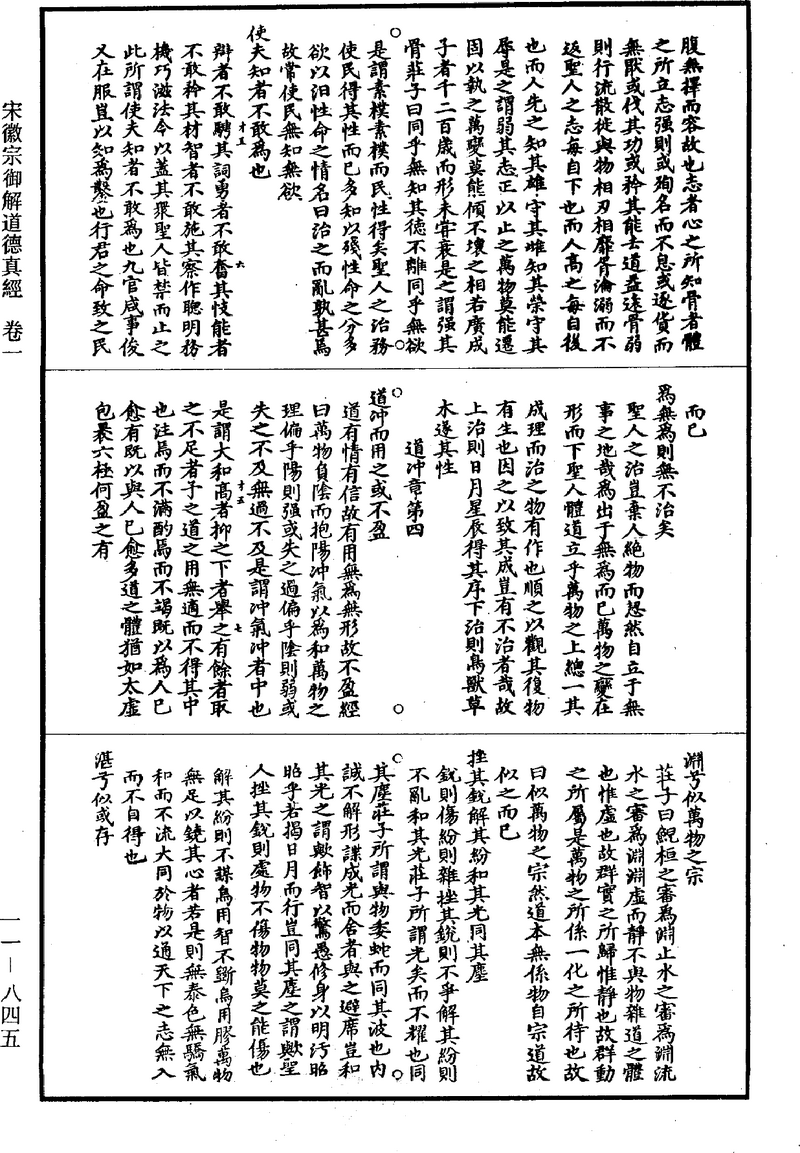 宋徽宗御解道德真經　卷一
腹無擇而容故也志者心之所知骨者體
之所立志强則或殉名而不息或逐貨而
無猒或伐其功或矜其能去道益遠骨弱
則行流散徙與物相刃相靡胥淪溺而不
返聖人之志每自下也而人高之每自後
也而人先之知其雄守其雌知其榮守其
辱是之謂弱其志正以止之萬物莫能遷
固以執之萬變莫能傾不壞之相若廣成
子者千二百歲而形未甞衰是之謂强其
骨莊子曰同乎無知其德不離同乎無欲
是謂素樸素樸而民性得矣聖人之治務
使民得其性而已多知以殘性命之分多
欲以汨性命之情名曰治之而亂孰甚焉
故常使民無知無欲
使夫知者不敢為也
辯者不敢騁其詞勇者不敢奮其忮能者
不敢矜其材智者不敢施其察作聰明務
機巧滋法令以蓋其衆聖人皆禁而止之
此所謂使夫知者不敢為也九官咸事俊
乂在服豈以知為鑿也行君之命致之民
而已
為無為則無不治矣
聖人之治豈棄人絶物而恝然自立于無
事之地哉為出于無為而已萬物之變在
形而下聖人體道立乎萬物之上總一其
成理而治之物有作也順之以觀其復物
有生也因之以致其成豈有不治者哉故
上治則日月星辰得其序下治則鳥獸草
木遂其性
道沖章第四
道沖而用之或不盈
道有情有信故有用無為無形故不盈經
曰萬物負陰而抱陽沖氣以為和萬物之
理偏乎陽則强或失之過偏乎陰則弱或
失之不及無過不及是謂沖氣沖者中也
是謂大和高者抑之下者舉之有餘者取
之不足者予之道之用無適而不得其中
也注焉而不滿酌焉而不竭既以為人已
愈有既以與人已愈多道之體猶如太虛
包褁六極何盈之有
淵兮似萬物之宗
莊子曰鯢桓之審為淵止水之審為淵流
水之審為淵淵虛而靜不與物雜道之體
也惟虛也故群實之所歸惟靜也故群動
之所屬是萬物之所係一化之所待也故
曰似萬物之宗然道本無係物自宗道故
似之而已
挫其銳解其紛和其光同其塵
銳則傷紛則雜挫其銳則不爭解其紛則
不亂和其光莊子所謂光矣而不耀也同
其塵莊子所謂與物委蛇而同其波也内
誠不解形諜成光而舍者與之避席豈和
其光之謂歟飾智以驚愚修身以明汚昭
昭乎若揭日月而行豈同其塵之謂歟聖
人挫其銳則處物不傷物物莫之能傷也
解其紛則不謀烏用智不斷烏用膠萬物
無足以鐃其心者若是則無泰色無驕氣
和而不流大同於物以通天下之志無入
而不自得也
湛兮似或存
十五
六
十五
七
一一—八四五